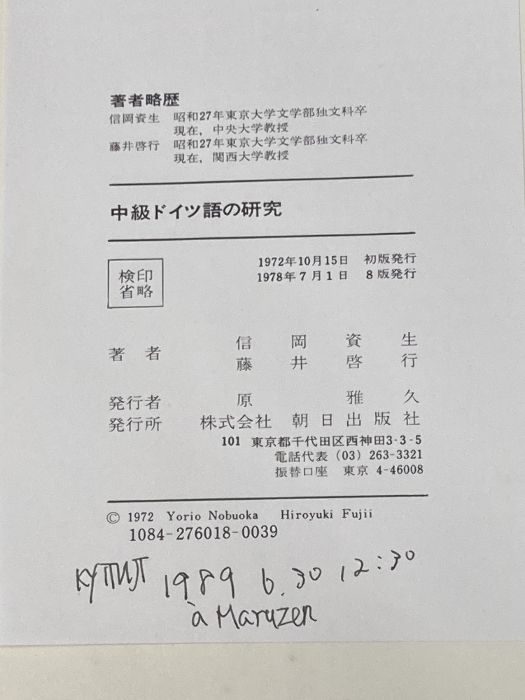 著者略歴
信岡資生 昭和27年東京大学文学部独文科卒
現在，中央大学教授
藤井啓行 昭和27年東京大学文学部独文科卒
現在，関西大学教授
中級ドイツ語の研究
1972年10月15日 初版発行
1978年7月1日 8版発行
検印
省略
著者 信岡資生
藤井啓行
発行者 原雅久
発行所 株式会社 朝日出版社
101 東京都千代田区西神田3-3-5
電話代表 (03) 263-3321
振替口座 東京 4-46008
© 1972 Yorio Nobuoka Hiroyuki Fujii
1084-276018-0039
1989 6.30 12:30
à Maruzen